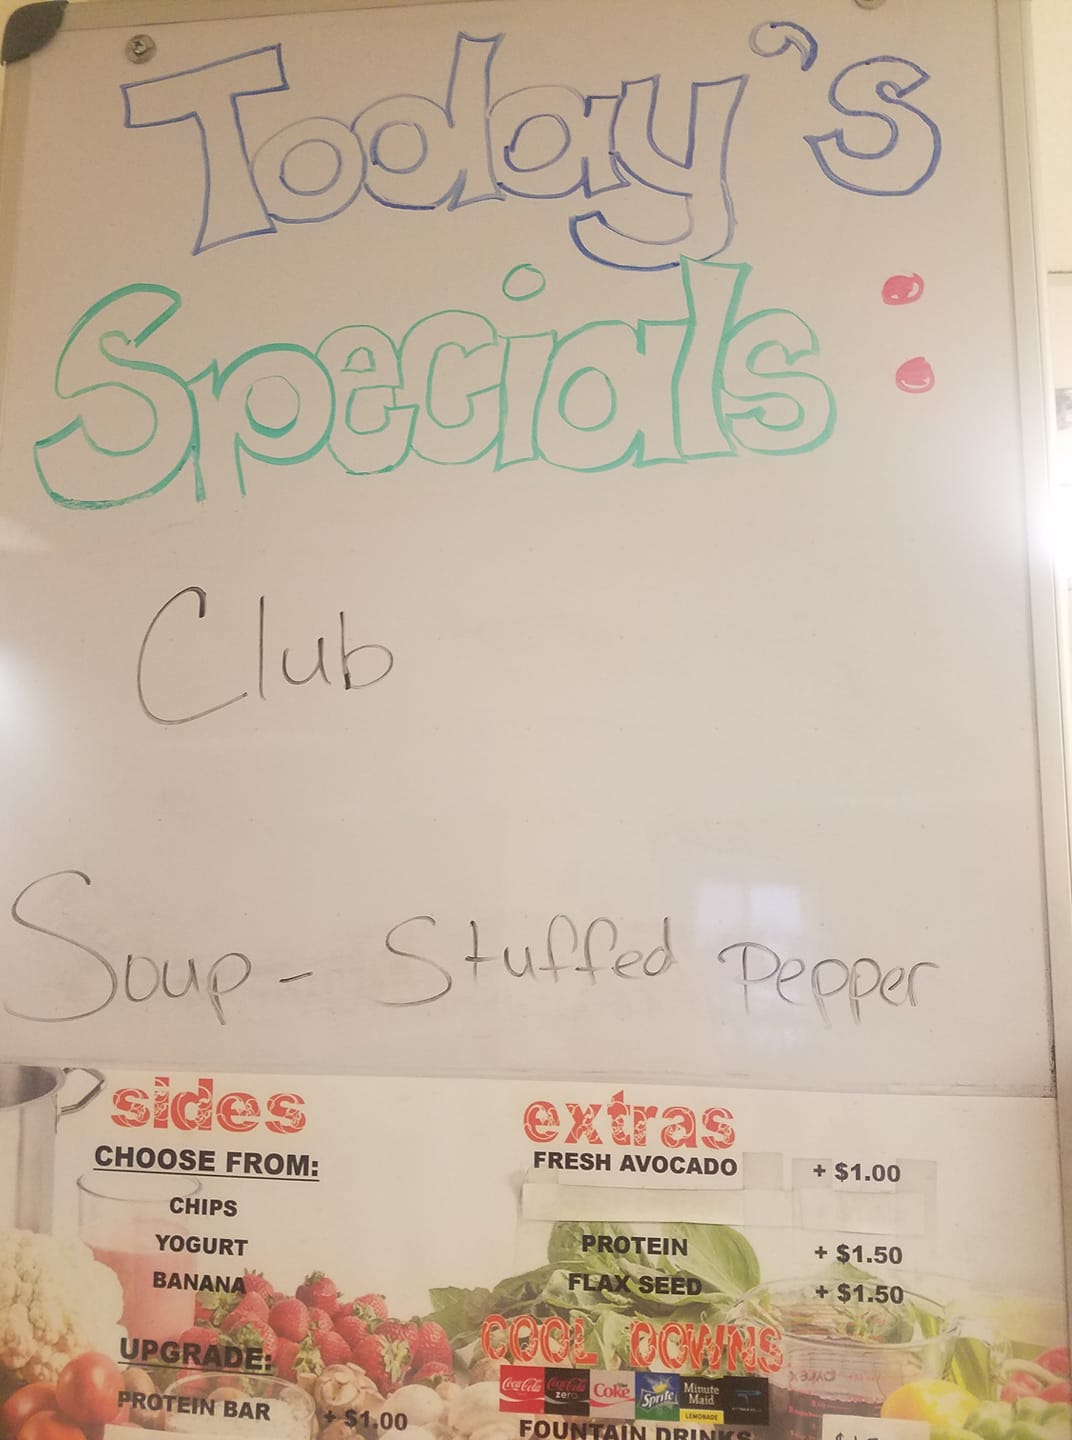 Today's
Specials:
Club
Soup - Stuffed Pepper
sides
CHOOSE FROM:
CHIPS
YOGURT
BANANA
UPGRADE:
PROTEIN BAR + $1.00
extras
FRESH AVOCADO + $1.00
PROTEIN + $1.50
FLAX SEED + $1.50
COOL DOWNS
Coca-Cola Coca-Cola zero Diet Coke Sprite Minute Maid LEMONADE
FOUNTAIN DRINKS